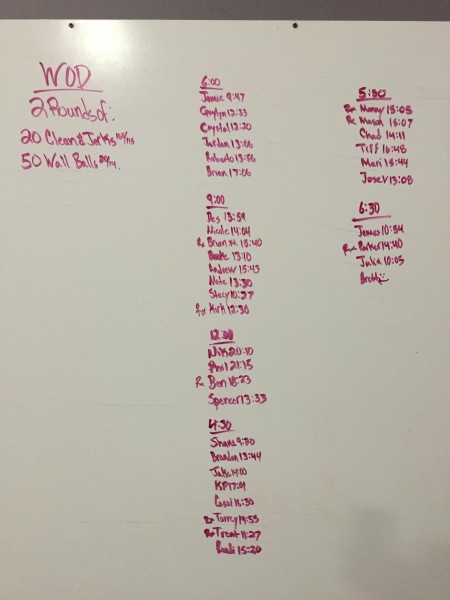 WOD
2 Rounds of:
20 Clean & Jerks
50 Wall Balls
6:00
Jamie 9:47
12:33
Crystal 12:20
Jordan 13:06
Roberto 13:56
Brian 17:06
9:00
Des 13:59
Nicole 14:04
Rx Brian M. 15:40
13:10
Andrew 15:43
Nate 13:30
Stacy 10:27
Rx Kirk 12:30
12:00
Nik 20:10
Phil 21:15
Rx Ben 18:23
Spencer 13:33
4:30
Shane 9:20
Brandon 13:44
Jake 14:00
KP 17:01
Cassi 16:30
Rx Torrey 14:53
Rx Trent 11:27
15:20
5:30
Rx Manny 15:05
Rx Mason 15:07
Chad 14:11
Tiff 16:48
Mari 15:44
Josev 13:08
6:30
James 10:54
Rx Parker 14:40
Juka 10:05